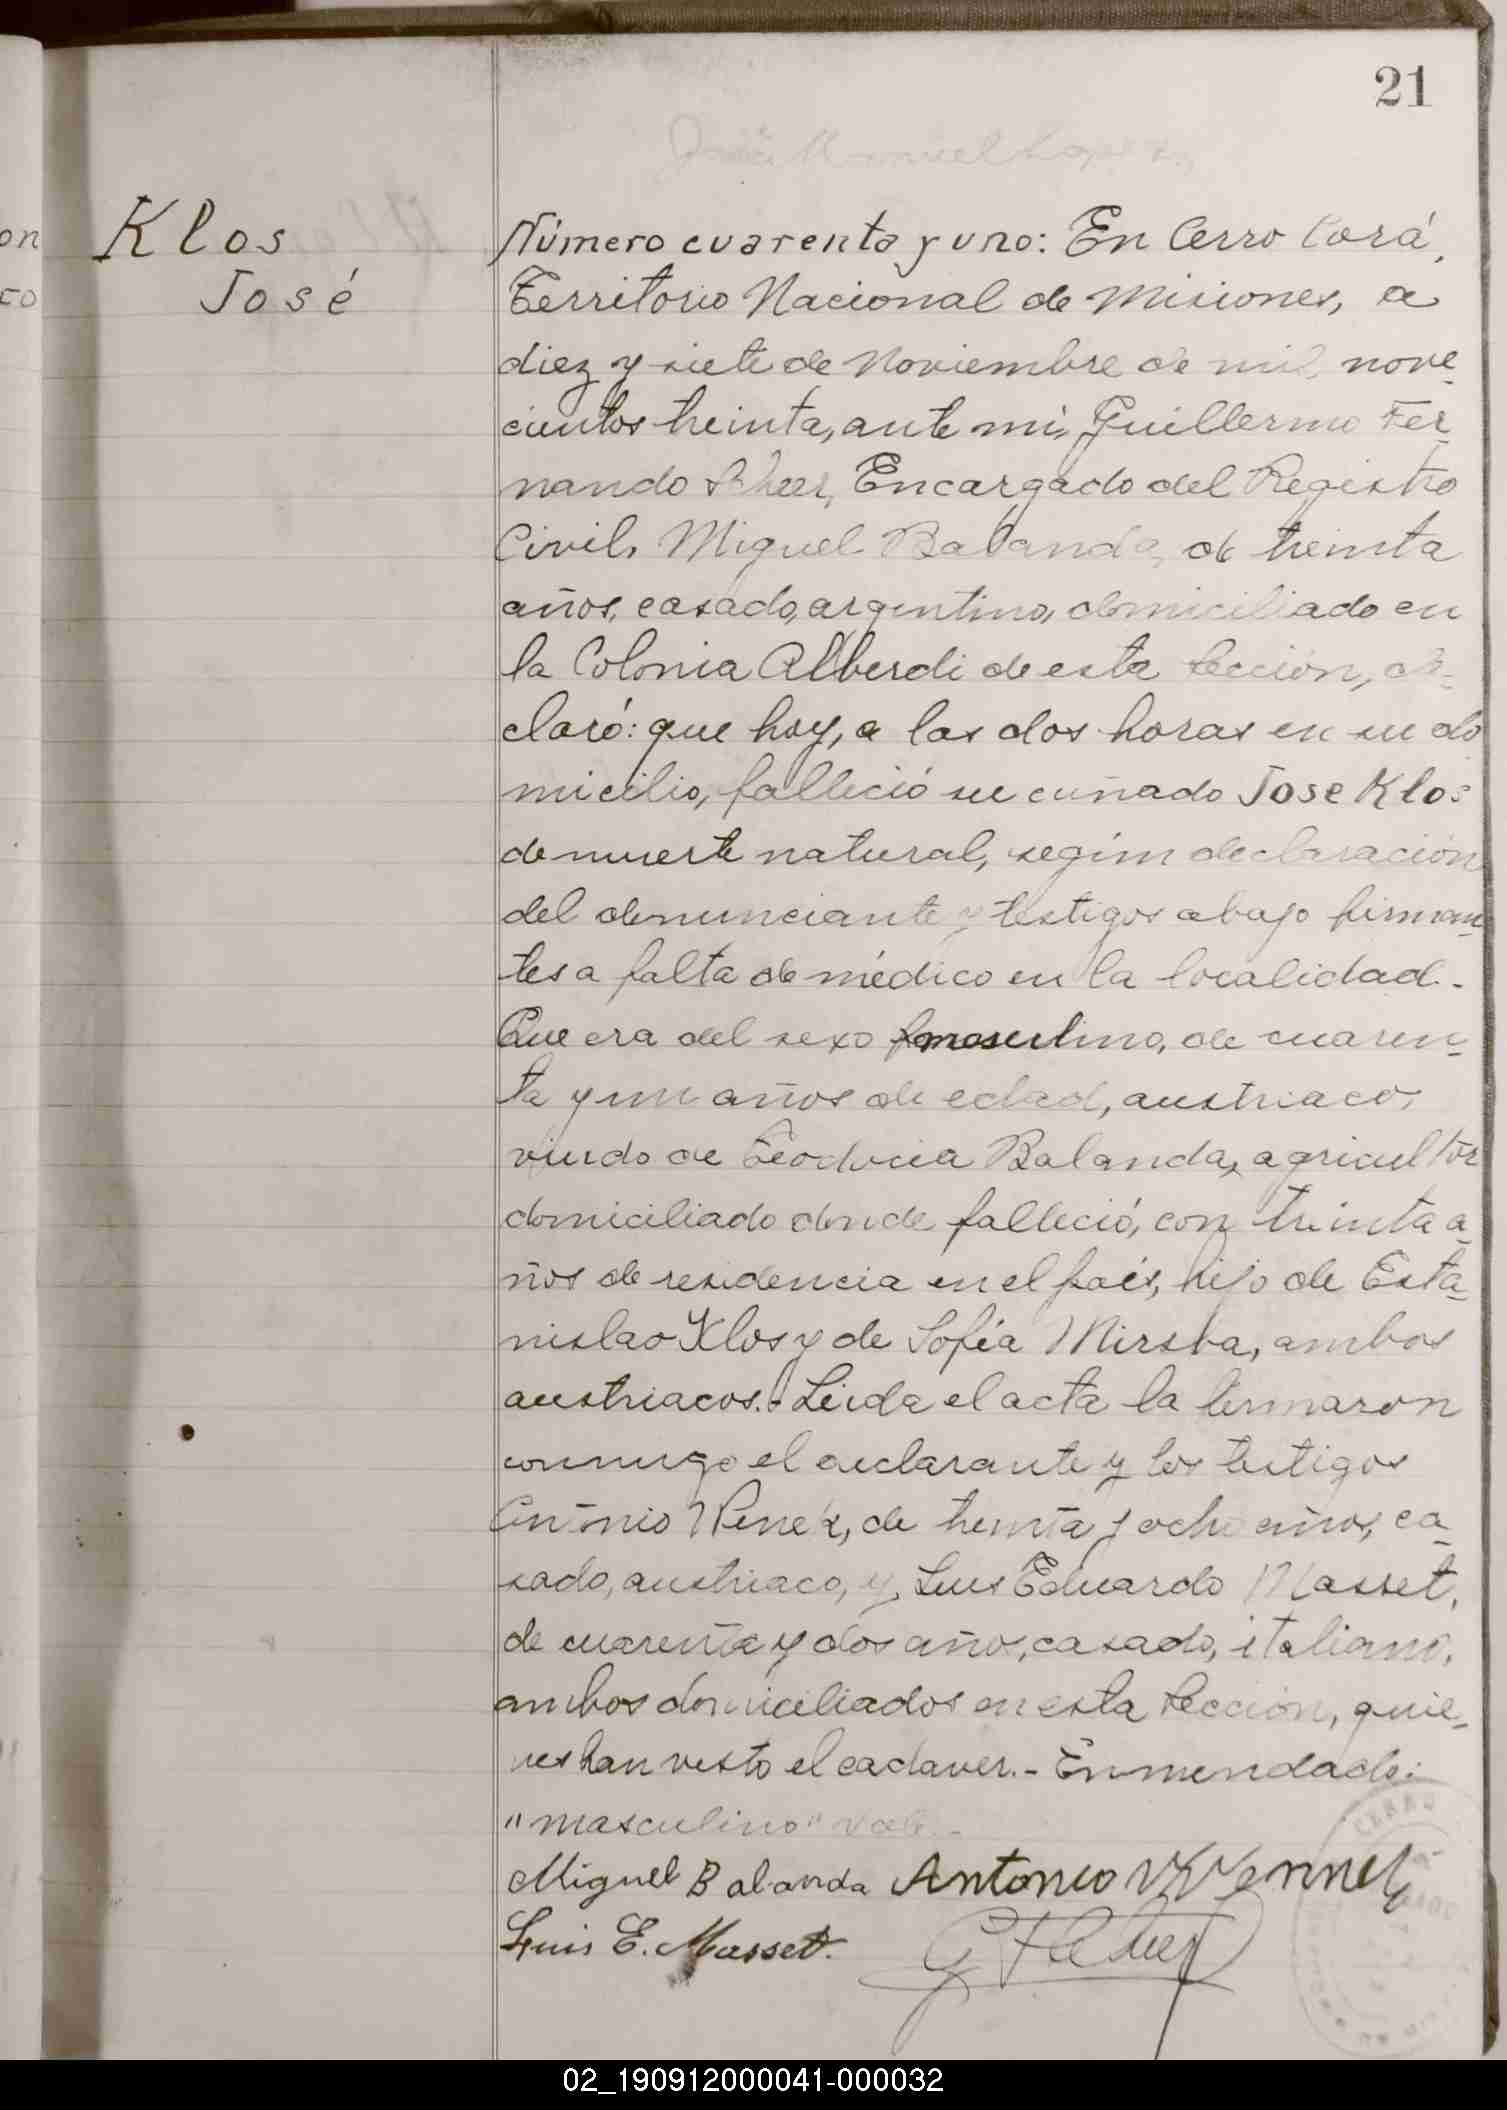 21
Klos
José
Número cuarenta y uno: En Cerro Corá,
Territorio Nacional de Misiones, a
diez y siete de Noviembre de mil nove-
cientos treinta, ante mí, Guillermo Fer-
nando Scheer, Encargado del Registro
Civil, Miguel Balanda, de treinta
años, casado, argentino, domiciliado en
la Colonia Alberdi de esta Sección, de-
claró: que hoy, a las dos horas en su do
micilio, falleció su cuñado Jose Klos
de muerte natural, según declaración
del denunciante y testigos abajo firman-
tes a falta de médico en la localidad.-
Que era del sexo masculino, de cuaren-
ta y un años de edad, austriaco,
viudo de Teodocia Balanda, agricultor
domiciliado donde falleció, con treinta a-
ños de residencia en el país, hijo de Esta-
nislao Klos y de Sofía Mirska, ambos
austriacos.- Leida el acta la firmaron
conmigo el declarante y los testigos
Antonio de treinta y ocho años, ca-
sado, austriaco, y Luis Eduardo Masset,
de cuarenta y dos años, casado, italiano,
ambos domiciliados en esta Sección, quie-
nes han visto el cadaver.- Enmendado:
"masculino" vale.-
Miguel Balanda Antonio
Luis E. Masset.
CERRO
02_190912000041-000032